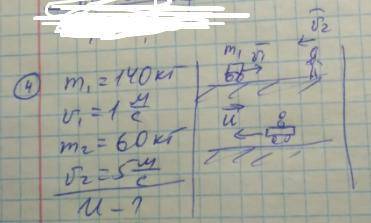 ④
m₁ = 140 кг
v₁ = 1 м/с
m₂ = 60 кг
v₂ = 5 м/с
U - ?
m₁ v₁
v₂
U